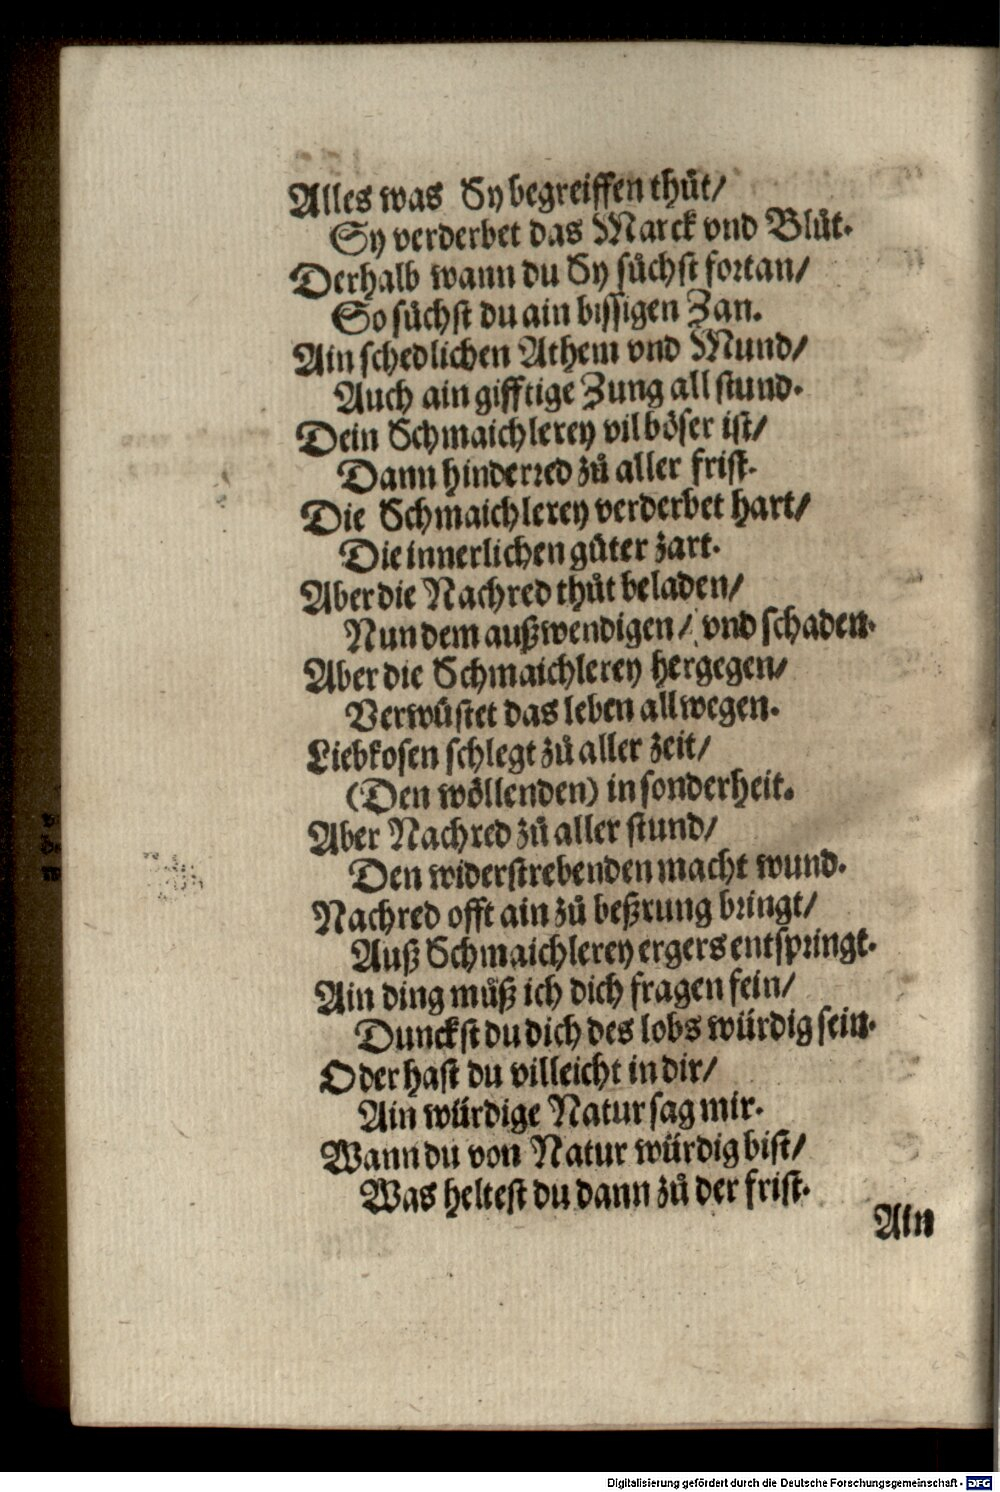 Alles was Sy begreiffen thůt/
Sy verderbet das Marck vnd Blůt.
Derhalb wann du Sy sůchst fortan/
So sůchst du ain bissigen Zan.
Ain schedlichen Athem vnd Mund/
Auch ain gifftige Zung all stund.
Dein Schmaichlerey vil böser ist/
Dann hinderred zů aller frist.
Die Schmaichlerey verderbet hart/
Die innerlichen gůter zart.
Aber die Nachred thůt beladen/
Nun dem außwendigen/ vnd schaden.
Aber die Schmaichlerey hergegen/
Verwüstet das leben allwegen.
Liebkosen schlegt zů aller zeit/
(Den wöllenden) in sonderheit.
Aber Nachred zů aller stund/
Den widerstrebenden macht wund.
Nachred offt ain zů beßrung bringt/
Auß Schmaichlerey ergers entspringt.
Ain ding můß ich dich fragen fein/
Dunckst du dich des lobs würdig sein.
Oder hast du villeicht in dir/
Ain würdige Natur sag mir.
Wann du von Natur würdig bist/
Was heltest du dann zů der frist.
Ain
Digitalisierung gefördert durch die Deutsche Forschungsgemeinschaft - DFG